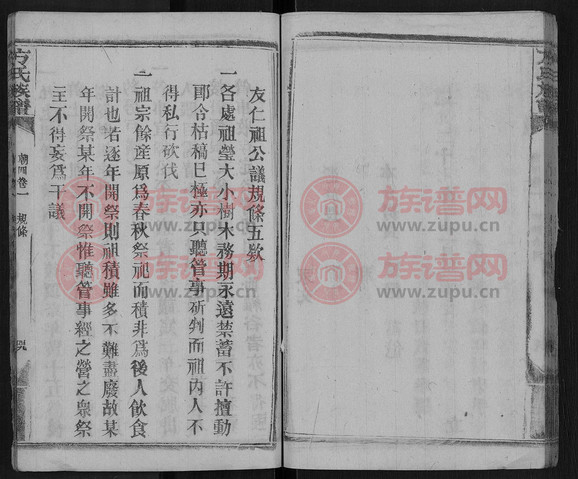 友仁祖公議規條五欵
一各處祖瑩大小樹木務期永遠禁蓄不許擅動
即令枯稿已極亦只聽管事斫判而祖內人不
得私行砍伐
一祖宗餘産原爲春秋祭祀而積非爲後人飲食
計也若逐年開祭則祖積雖多不難盡廢故某
年開祭某年不開祭惟聽管事經之營之衆祭
主不得妄爲干議
方氏族譜
卷一
規條
族谱网
www.zupu.cn
族谱网
www.zupu.cn
族谱网
www.zupu.cn
族谱网
www.zupu.cn